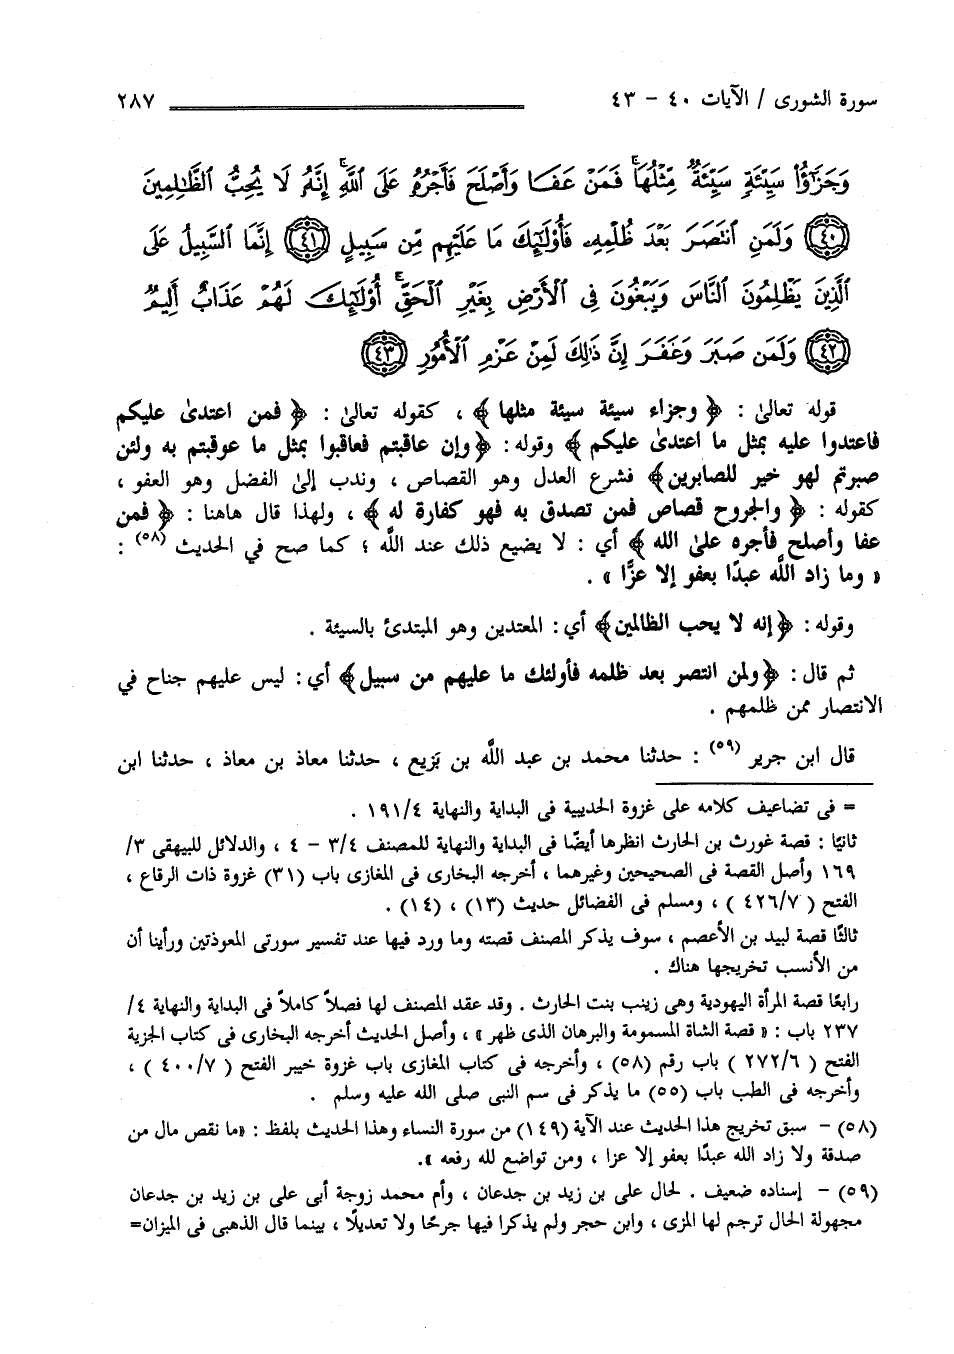 سورة الشورى / الآيات ٤٠ - ٤٣ ٢٨٧
وَجَزَٰٓؤُا۟ سَيِّئَةٍ سَيِّئَةٌ مِّثْلُهَا ۖ فَمَنْ عَفَا وَأَصْلَحَ فَأَجْرُهُۥ عَلَى ٱللَّهِ ۚ إِنَّهُۥ لَا يُحِبُّ ٱلظَّٰلِمِينَ
﴿٤٠﴾ وَلَمَنِ ٱنتَصَرَ بَعْدَ ظُلْمِهِۦ فَأُو۟لَٰٓئِكَ مَا عَلَيْهِم مِّن سَبِيلٍ ﴿٤١﴾ إِنَّمَا ٱلسَّبِيلُ عَلَى
ٱلَّذِينَ يَظْلِمُونَ ٱلنَّاسَ وَيَبْغُونَ فِى ٱلْأَرْضِ بِغَيْرِ ٱلْحَقِّ ۚ أُو۟لَٰٓئِكَ لَهُمْ عَذَابٌ أَلِيمٌ
﴿٤٢﴾ وَلَمَن صَبَرَ وَغَفَرَ إِنَّ ذَٰلِكَ لَمِنْ عَزْمِ ٱلْأُمُورِ ﴿٤٣﴾
قوله تعالىٰ : ﴿ وجزاء سيئة سيئة مثلها ﴾ ، كقوله تعالىٰ : ﴿ فمن اعتدىٰ عليكم
فاعتدوا عليه بمثل ما اعتدىٰ عليكم ﴾ وقوله : ﴿ وإن عاقبتم فعاقبوا بمثل ما عوقبتم به ولئن
صبرتم لهو خير للصابرين ﴾ فشرع العدل وهو القصاص ، وندب إلىٰ الفضل وهو العفو ،
كقوله : ﴿ والجروح قصاص فمن تصدق به فهو كفارة له ﴾ ، ولهذا قال هاهنا : ﴿ فمن
عفا وأصلح فأجره علىٰ الله ﴾ أي : لا يضيع ذلك عند اللَّه ؛ كما صح في الحديث (٥٨) :
« وما زاد اللَّه عبدًا بعفو إلا عزًّا » .
وقوله : ﴿ إنه لا يحب الظالمين ﴾ أي : المعتدين وهو المبتدئ بالسيئة .
ثم قال : ﴿ ولمن انتصر بعد ظلمه فأولئك ما عليهم من سبيل ﴾ أي : ليس عليهم جناح في
الانتصار ممن ظلمهم .
قال ابن جرير (٥٩) : حدثنا محمد بن عبد اللَّه بن بَزيع ، حدثنا معاذ بن معاذ ، حدثنا ابن
= فى تضاعيف كلامه على غزوة الحديبية فى البداية والنهاية ١٩١/٤ .
ثانيًا : قصة غورث بن الحارث انظرها أيضًا فى البداية والنهاية للمصنف ٣/٤ - ٤ ، والدلائل للبيهقى ٣/
١٦٩ وأصل القصة فى الصحيحين وغيرهما ، أخرجه البخارى فى المغازى باب (٣١) غزوة ذات الرقاع ،
الفتح ( ٤٢٦/٧ ) ، ومسلم فى الفضائل حديث (١٣) ، (١٤) .
ثالثًا قصة لبيد بن الأعصم ، سوف يذكر المصنف قصته وما ورد فيها عند تفسير سورتى المعوذتين ورأينا أن
من الأنسب تخريجها هناك .
رابعًا قصة المرأة اليهودية وهى زينب بنت الحارث . وقد عقد المصنف لها فصلاً كاملاً فى البداية والنهاية ٤/
٢٣٧ باب : « قصة الشاة المسمومة والبرهان الذى ظهر » ، وأصل الحديث أخرجه البخارى فى كتاب الجزية
الفتح ( ٢٧٢/٦ ) باب رقم (٥٨) ، وأخرجه فى كتاب المغازى باب غزوة خيبر الفتح ( ٤٠٠/٧ ) ،
وأخرجه فى الطب باب (٥٥) ما يذكر فى سم النبى صلى الله عليه وسلم .
(٥٨) - سبق تخريج هذا الحديث عند الآية (١٤٩) من سورة النساء وهذا الحديث بلفظ : «ما نقص مال من
صدقة ولا زاد الله عبدًا بعفو إلا عزا ، ومن تواضع لله رفعه ».
(٥٩) - إسناده ضعيف . لحال على بن زيد بن جدعان ، وأم محمد زوجة أبى على بن زيد بن جدعان
مجهولة الحال ترجم لها المزى ، وابن حجر ولم يذكرا فيها جرحًا ولا تعديلًا ، بينما قال الذهبى فى الميزان=